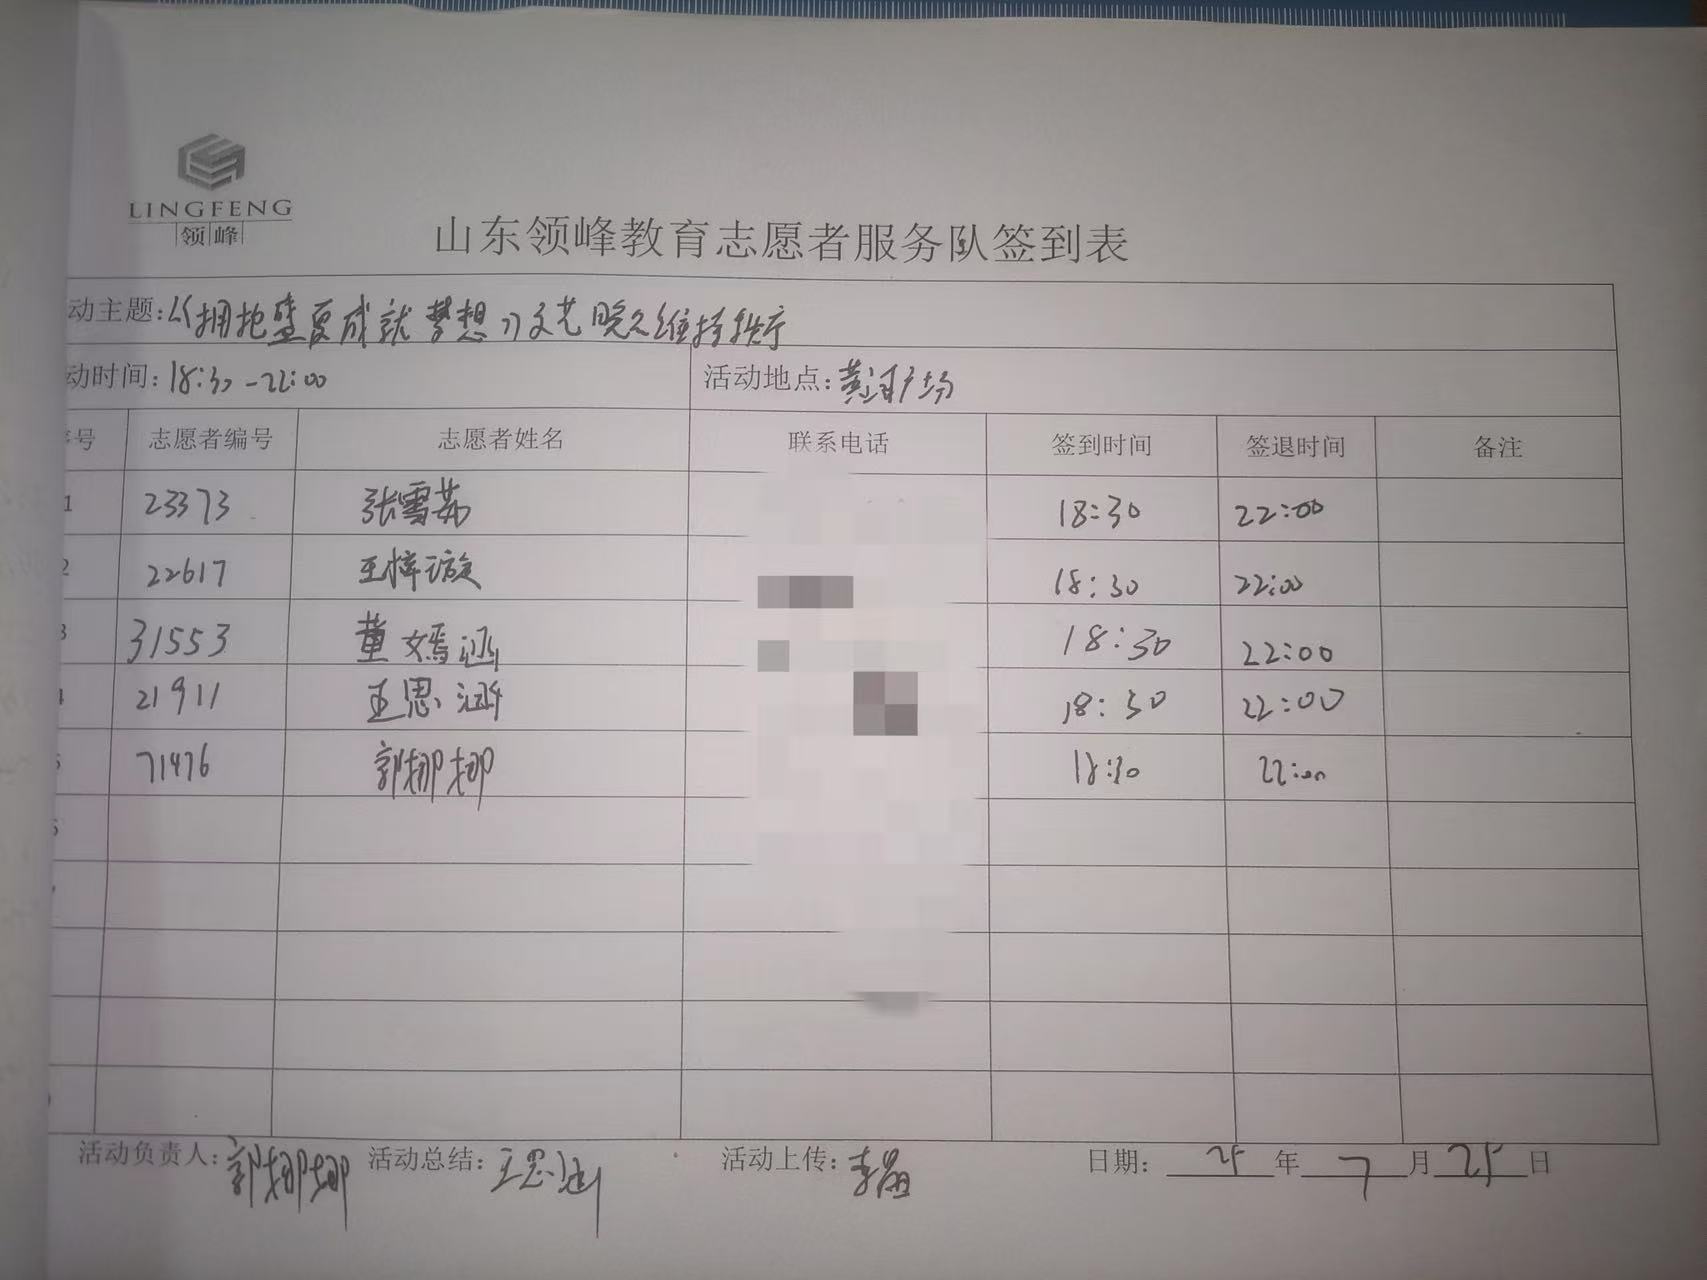 LINGFENG
领峰
山东领峰教育志愿者服务队签到表
动主题:《拥抱盛夏成就梦想》文艺晚会维持秩序
动时间:18:30-22:00 活动地点:黄河广场
序号 志愿者编号 志愿者姓名 联系电话 签到时间 签退时间 备注
1 23373 张雪茹 18:30 22:00
2 22617 王梓漩 18:30 22:00
3 31553 董嫣涵 18:30 22:00
4 21911 王思涵 18:30 22:00
5 71476 郭娜娜 18:30 22:00
6
活动负责人:郭娜娜 活动总结:王思涵 活动上传:李 日期: 25 年 7 月 25 日